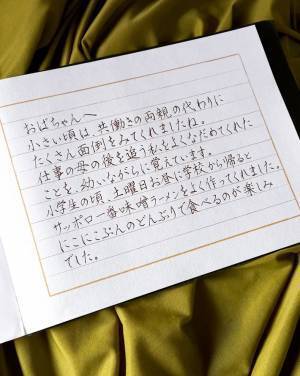 おばちゃんへ
小さい頃は、共働きの両親の代わりに
たくさん面倒をみてくれましたね。
仕事の母の後を追う私をよくなだめてくれた
ことを、幼いながらに覚えています。
小学生の頃、土曜日お昼に学校から帰ると
サッポロ一番味噌ラーメンをよく作ってくれました。
にこにこぷんのどんぶりで食べるのが楽しみ
でした。